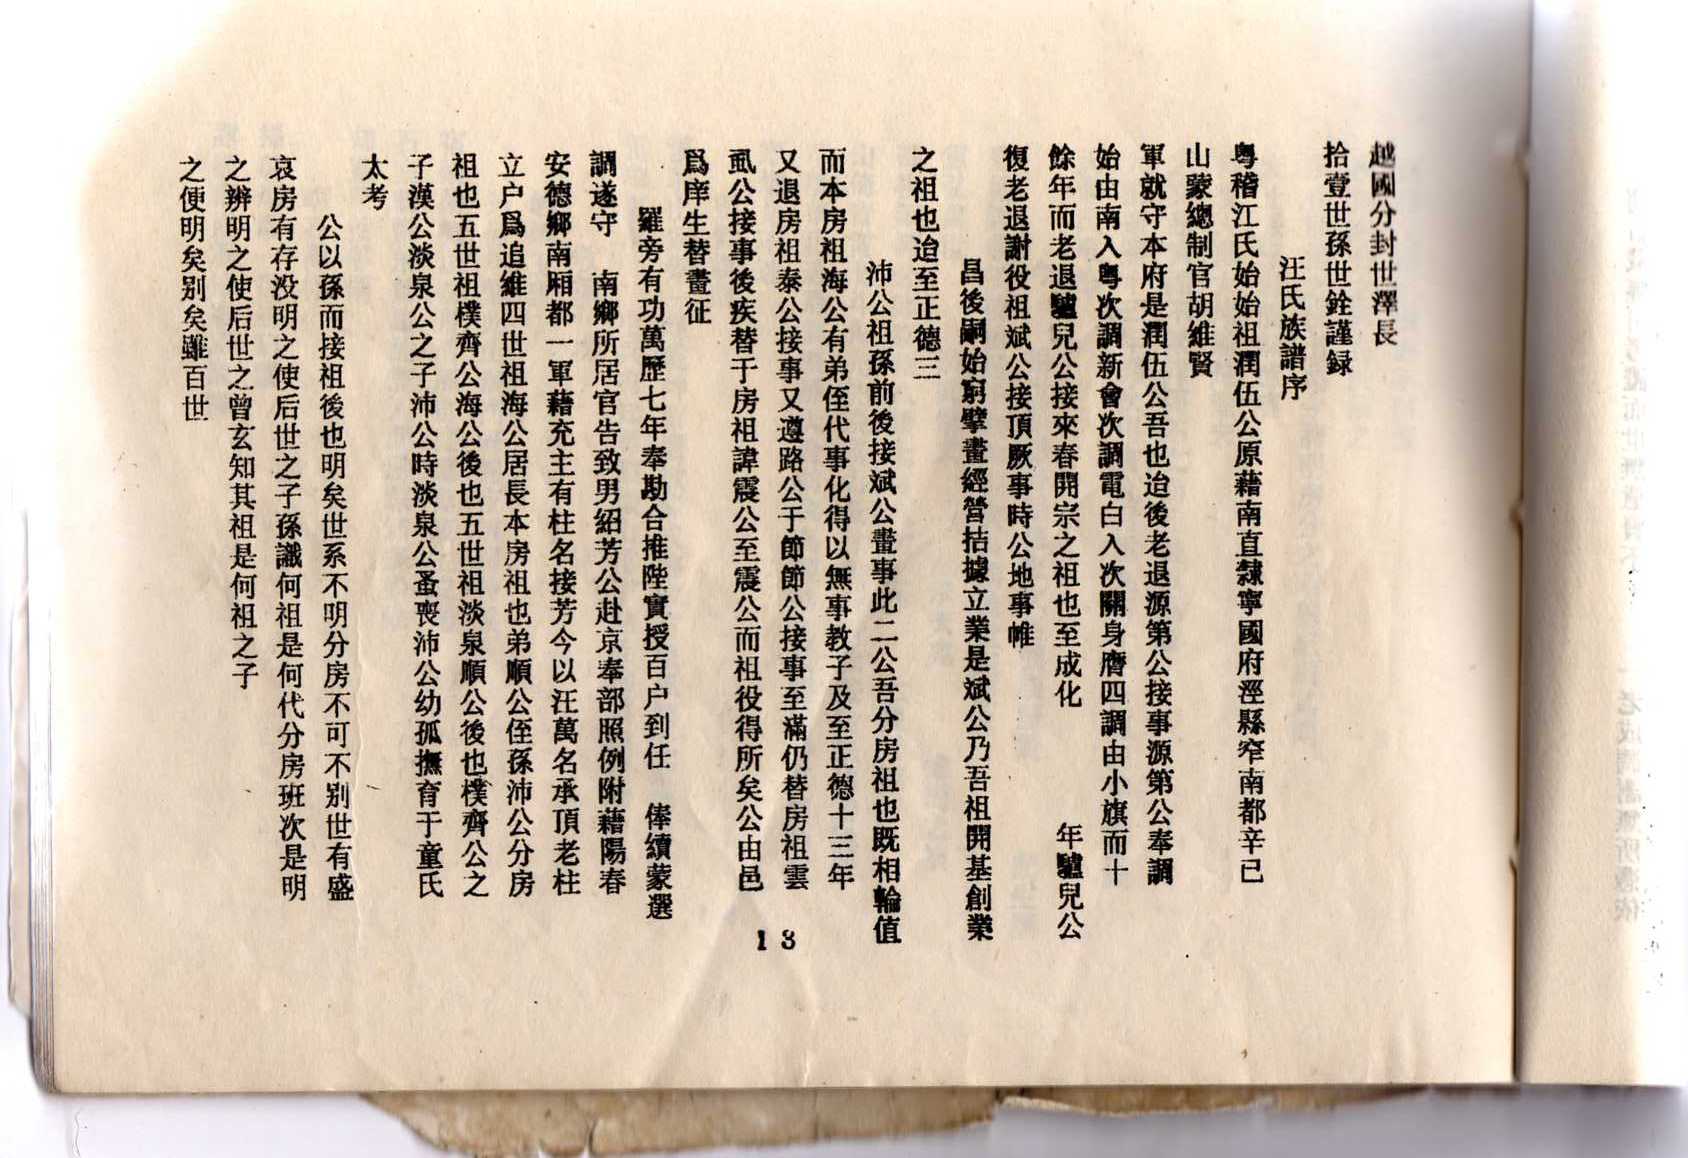 越國分封世澤長
拾壹世孫世銓謹録
汪氏族譜序
粤稽江氏始始祖潤伍公原藉南直隸寧國府涇縣窄南都辛已
山蒙總制官胡維賢
軍就守本府是潤伍公吾也迨後老退源第公接事源第公奉調
始由南入粤次調新會次調電白入次關身膺四調由小旗而十
餘年而老退驢兒公接來春開宗之祖也至成化 年驢兒公
復老退謝役祖斌公接頂厥事時公地事帷
昌後嗣始窮擘畫經營拮據立業是斌公乃吾祖開基創業
之祖也迨至正德三
沛公祖孫前後接斌公畫事此二公吾分房祖也既相輪值
而本房祖海公有弟侄代事化得以無事教子及至正德十三年
又退房祖泰公接事又遵路公于節節公接事至滿仍替房祖雲
虱公接事後疾替于房祖諱震公至震公而祖役得所矣公由邑
爲庠生替畫征
羅旁有功萬歷七年奉勘合推陞實授百户到任 俸續蒙選
調遂守 南鄉所居官告致男紹芳公赴京奉部照例附藉陽春
安德鄉南厢都一軍藉充主有柱名接芳今以汪萬名承頂老柱
立户爲追維四世祖海公居長本房祖也弟順公侄孫沛公分房
祖也五世祖樸齊公海公後也五世祖淡泉順公後也樸齊公之
子漢公淡泉公之子沛公時淡泉公蚤喪沛公幼孤撫育于童氏
太考
公以孫而接祖後也明矣世系不明分房不可不别世有盛
哀房有存没明之使后世之子孫識何祖是何代分房班次是明
之辨明之使后世之曾玄知其祖是何祖之子
之便明矣别矣雖百世
13